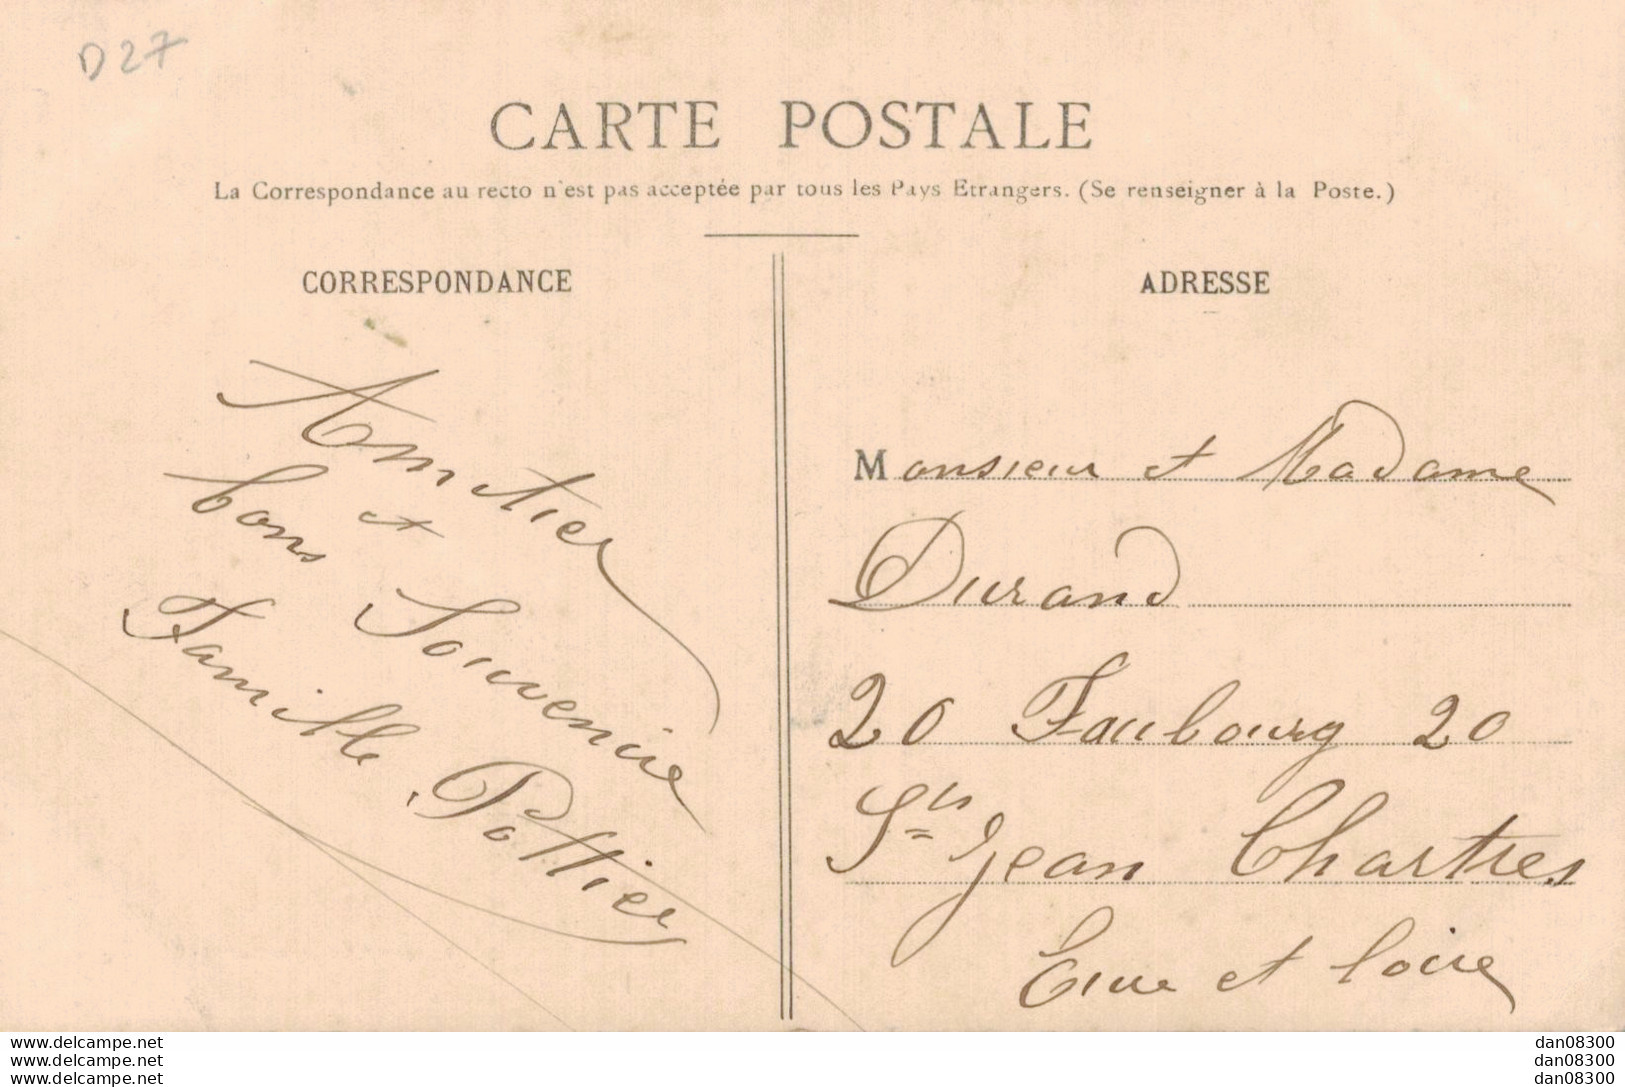 D27
CARTE POSTALE
La Correspondance au recto n'est pas acceptée par tous les Pays Etrangers. (Se renseigner à la Poste.)
CORRESPONDANCE
Amitier
et
bons Souvenire
Famille Pottier
ADRESSE
Monsieur et Madame
Durand
20 Faubourg 20
St Jean Chartres
Eure et Loire
www.delcampe.net
www.delcampe.net
www.delcampe.net
dan08300
dan08300
dan08300